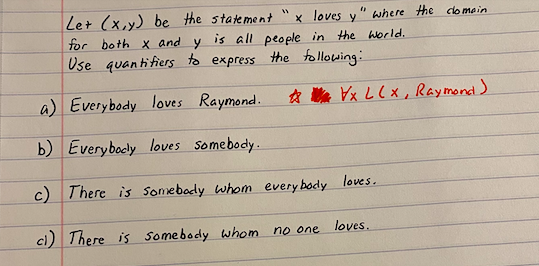 Let (x,y) be the statement " x loves y" where the domain
for both x and y is all people in the world.
Use quantifiers to express the following:
a) Everybody loves Raymond. ☆ ∀x L(x, Raymond)
b) Everybody loves somebody.
c) There is somebody whom everybody loves.
d) There is somebody whom no one loves.